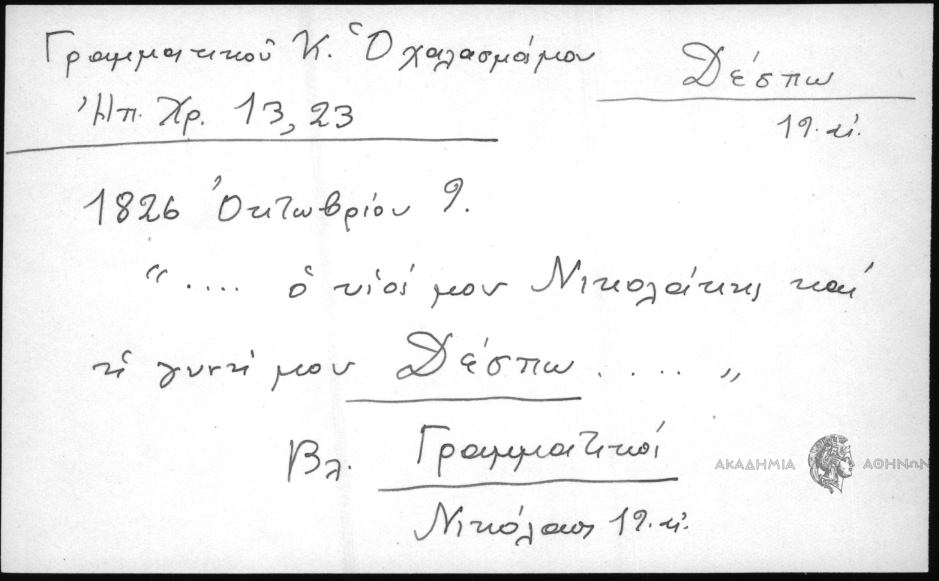 Γραμματικοῦ Κ. Ὁ χαλασμὸς μου
Δέσπω
Ἠπ. Χρ. 13, 23
19. αἰ.
1826 Ὀκτωβρίου 9.
“.... ὁ υἱός μου Νικολάκης καί
ἡ γυνή μου Δέσπω ..... „
Βλ. Γραμματικοί
Νικόλαος 19. αἰ.
ΑΚΑΔΗΜΙΑ ΑΘΗΝΩΝ